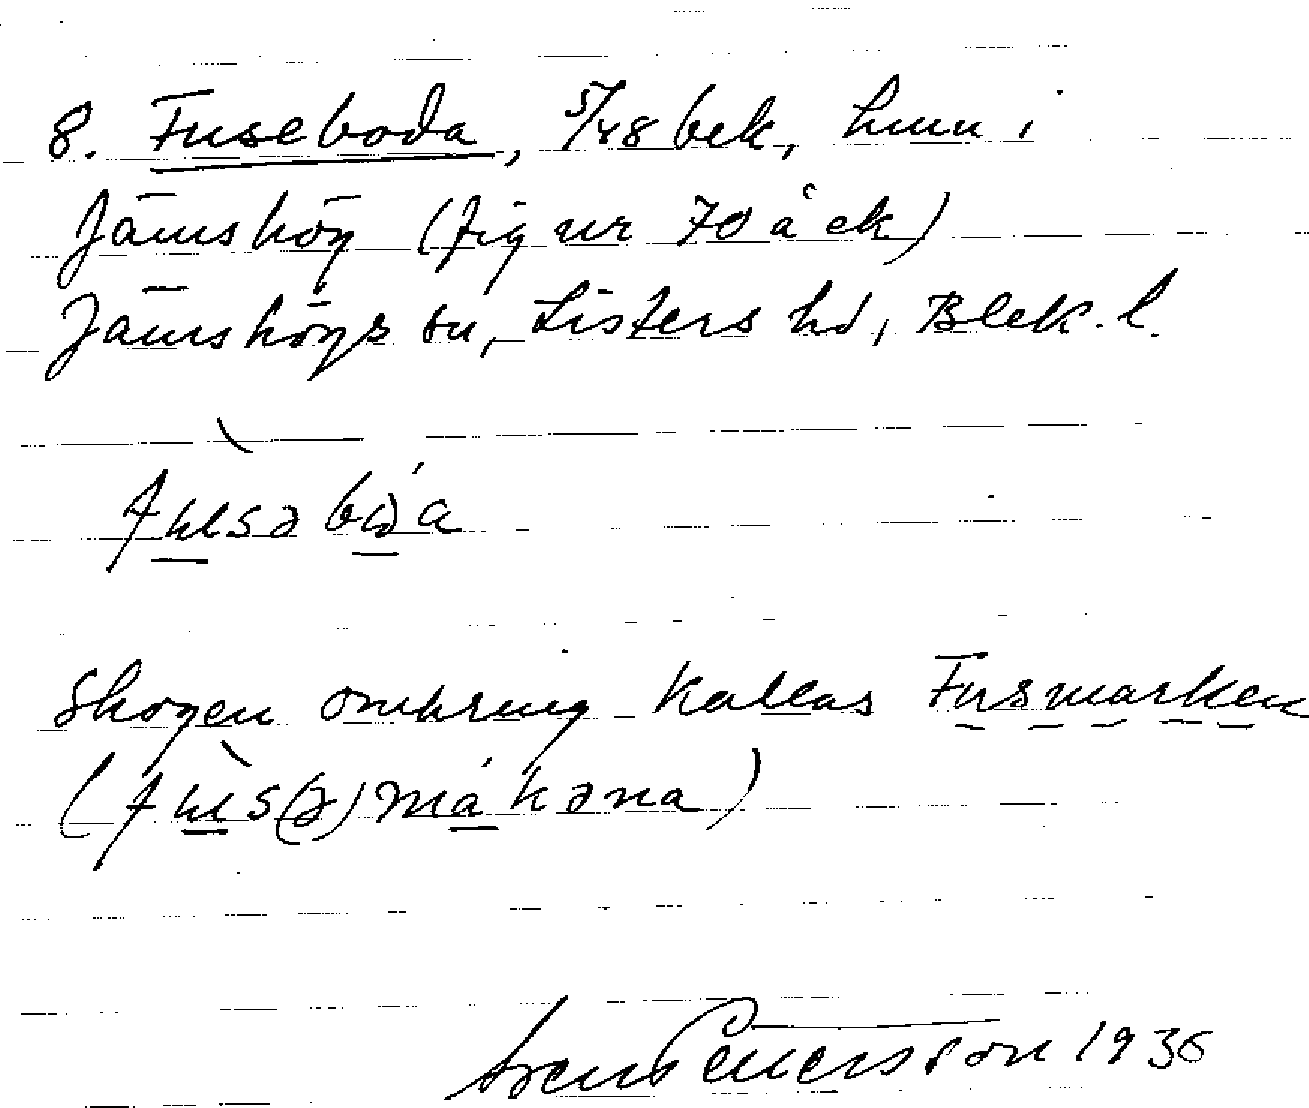 8. Fuseboda, 5/48 bek, hmn i
Jämshög (fig ur 70 å ek)
Jämshögs sn, Listers hd, Blek. l.
fusəboa
Skogen omkring kallas Fusmarken
(fus(ə)makəna)
1936